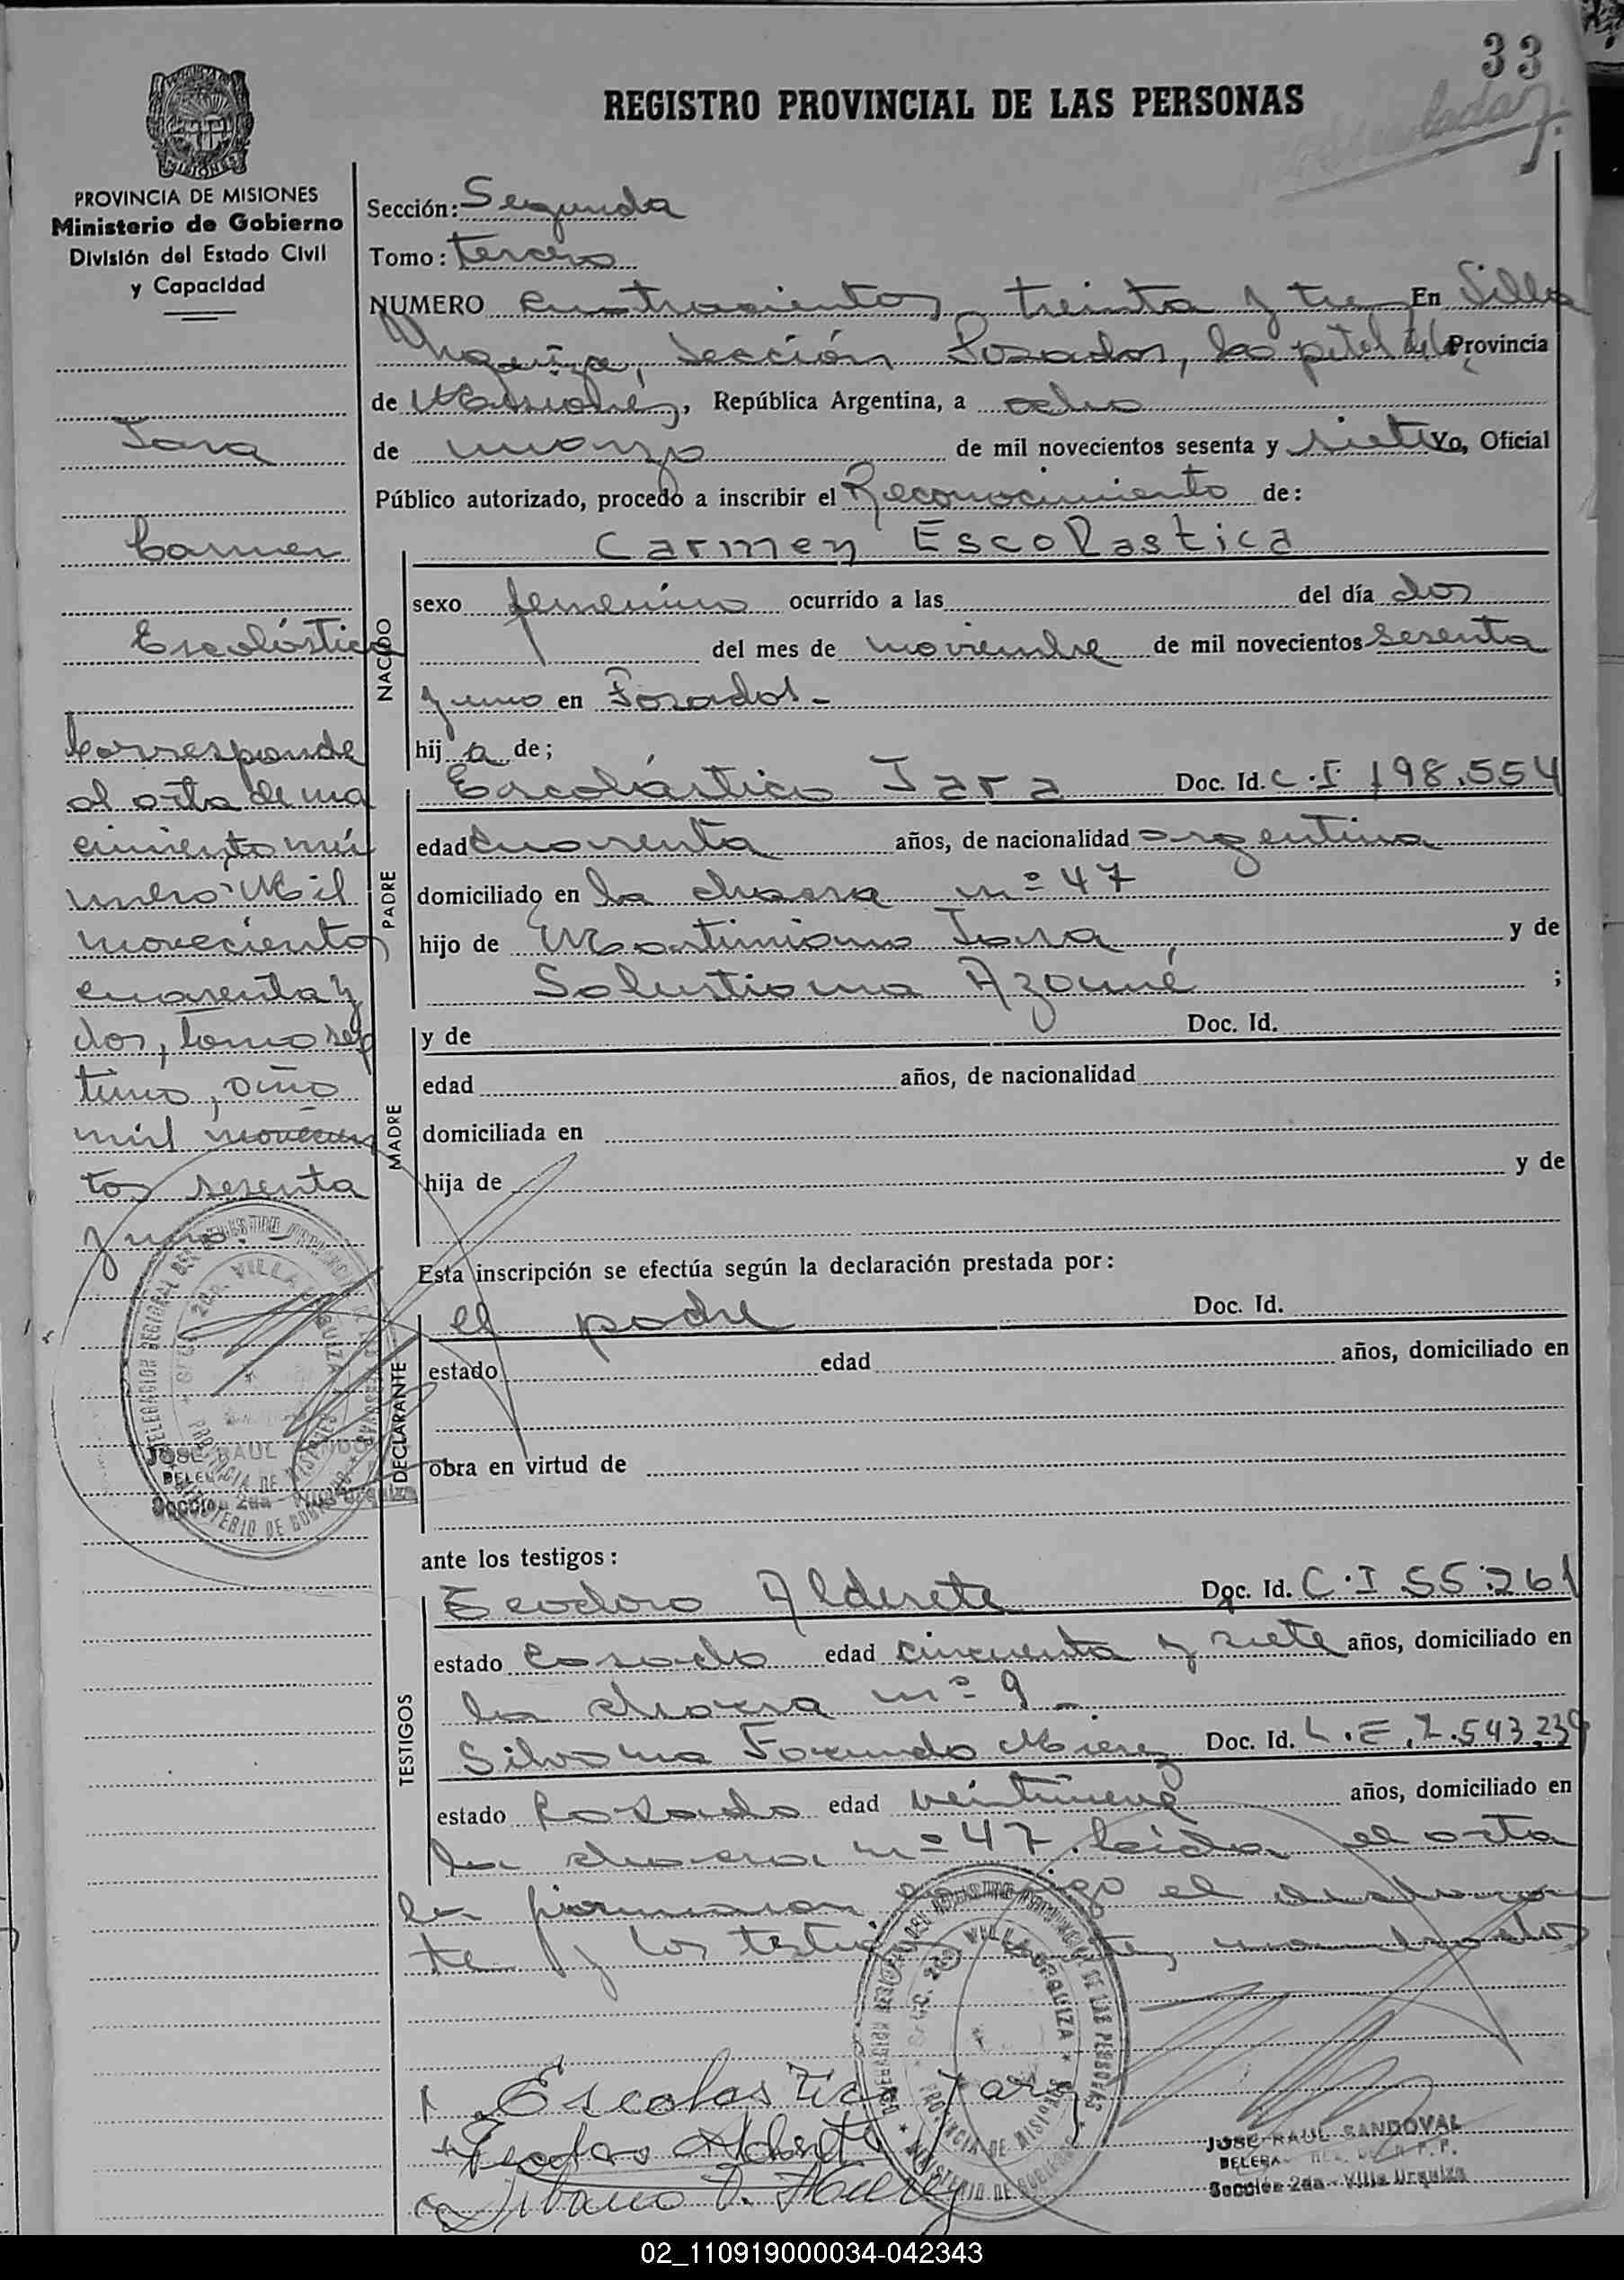 33
REGISTRO PROVINCIAL DE LAS PERSONAS
MISIONES
PROVINCIA DE MISIONES
Ministerio de Gobierno
División del Estado Civil
y Capacidad
Jara
Carmen
Escolástica
Corresponde
al acta de na
cimiento nú
mero Mil
novecientos
cuarenta y
dos, tomo sép
timo, año
mil novecien
tos sesenta
y uno.-
Sección: Segunda
Tomo: tercero
NUMERO cuatrocientos treinta y tres En Villa
Urquiza, Sección Posadas, Capital de la Provincia
de Misiones, República Argentina, a ocho
de marzo de mil novecientos sesenta y siete Yo, Oficial
Público autorizado, procedo a inscribir el Reconocimiento de:
NACIDO
Carmen Escolastica
sexo femenino ocurrido a las del día dos
del mes de noviembre de mil novecientos sesenta
y uno en Posadas.-
hij a de;
PADRE
Escolástico Jara Doc. Id. C.I 198.554
edad cuarenta años, de nacionalidad argentina
domiciliado en la chacra nº 47
hijo de Martiniano Jara, y de
Salustiana ;
MADRE
y de Doc. Id.
edad años, de nacionalidad
domiciliada en
hija de y de
Esta inscripción se efectúa según la declaración prestada por:
DECLARANTE
el padre Doc. Id.
estado edad años, domiciliado en
obra en virtud de
ante los testigos:
TESTIGOS
Teodoro Alderete Doc. Id. C.I 55.261
estado Casado edad cincuenta y siete años, domiciliado en
la chacra nº 9 -
Silvano Facundo Doc. Id. L.E.
estado Casado edad veintinueve años, domiciliado en
la chacra nº 47. Leída el acta
la firman conmigo el declaran
te y los testigos
Escolastico Jara
Teodoro Alderete
JOSE RAUL SANDOVAL
Sección 2da - Villa Urquiza
DELEGACION REGIONAL DEL REGISTRO PROVINCIAL DE LAS PERSONAS
SECC. 2da. VILLA URQUIZA
PROVINCIA DE MISIONES
MINISTERIO DE GOBIERNO
JOSE RAUL SANDOVAL
Sección 2da - Villa Urquiza
02_110919000034-042343